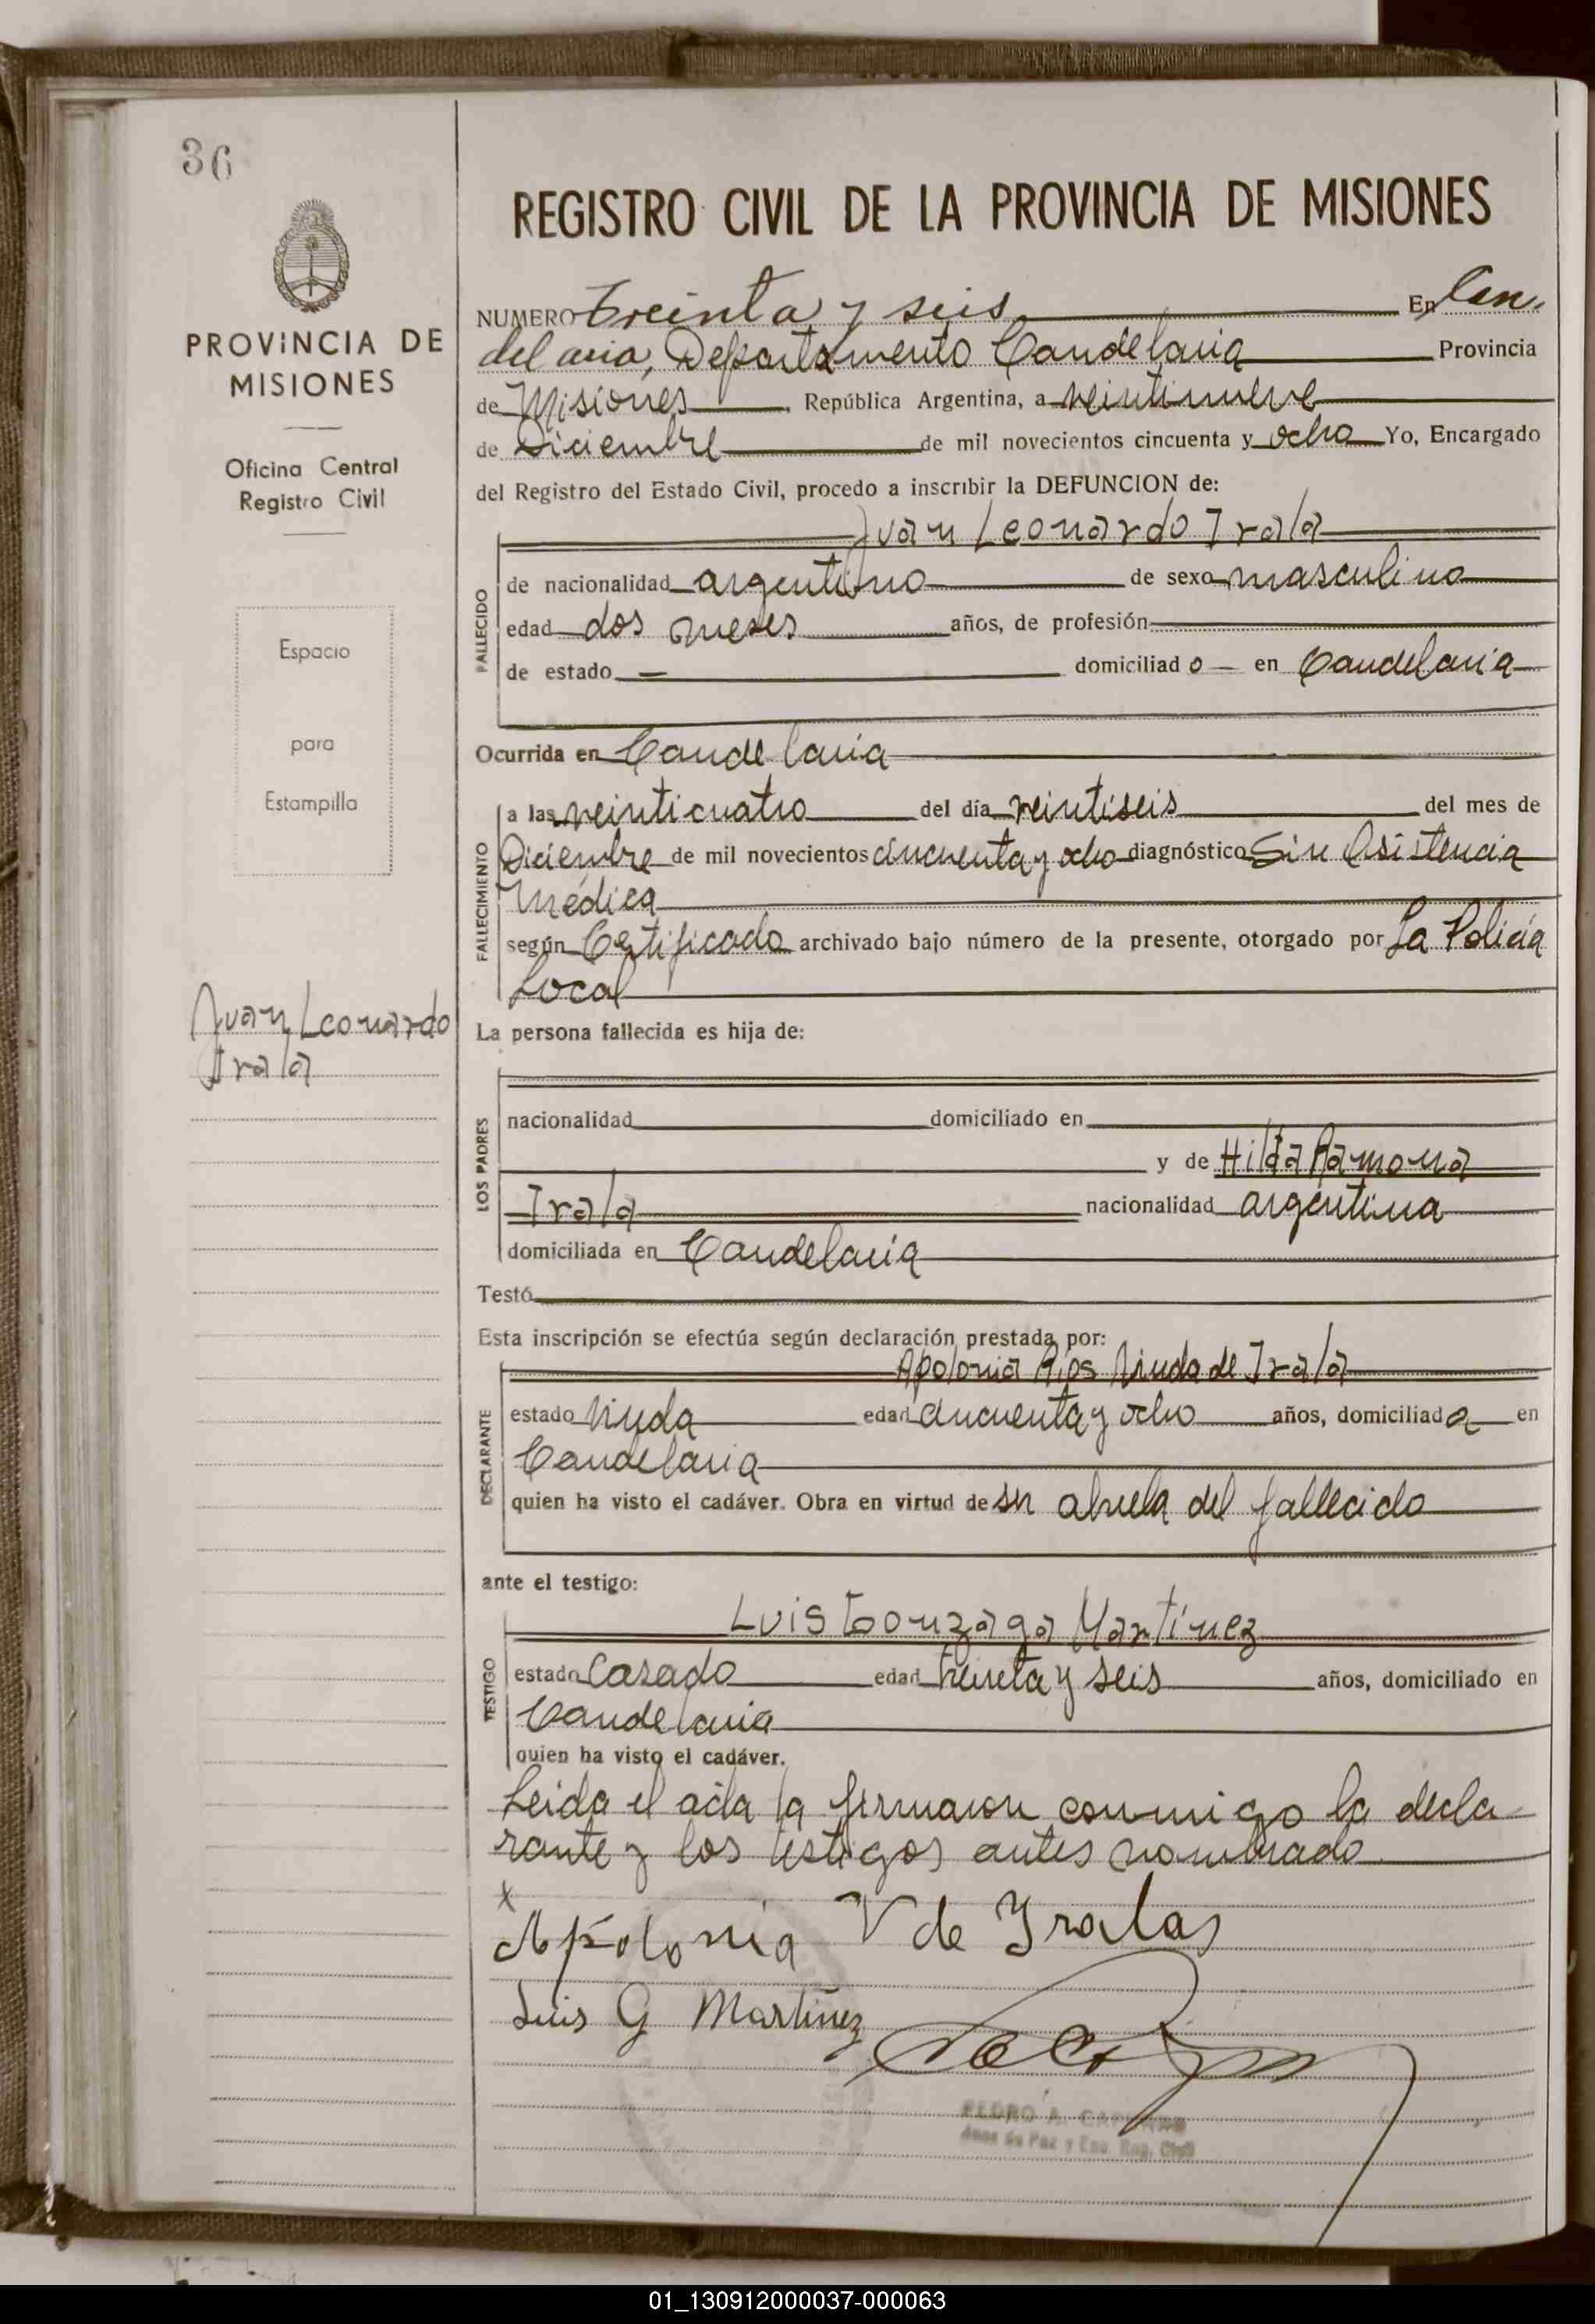 36
PROVINCIA DE
MISIONES
Oficina Central
Registro Civil
Espacio
para
Estampilla
Juan Leonardo
Irala
REGISTRO CIVIL DE LA PROVINCIA DE MISIONES
NUMERO Treinta y seis En Can-
delaria, Departamento Candelaria Provincia
de Misiones, República Argentina, a veintinueve
de Diciembre de mil novecientos cincuenta y ocho Yo, Encargado
del Registro del Estado Civil, procedo a inscribir la DEFUNCION de:
Juan Leonardo Irala
FALLECIDO
de nacionalidad argentino de sexo masculino
edad dos meses años, de profesión
de estado — domiciliado — en Candelaria
Ocurrida en Candelaria
FALLECIMIENTO
a las veinticuatro del día veintiseis del mes de
Diciembre de mil novecientos cincuenta y ocho diagnóstico Sin Asistencia
Médica
según Certificado archivado bajo número de la presente, otorgado por La Policía
Local
La persona fallecida es hija de:
LOS PADRES
nacionalidad domiciliado en
y de Hilda Ramona
Irala nacionalidad argentina
domiciliada en Candelaria
Testó
Esta inscripción se efectúa según declaración prestada por:
Apolonia Ríos Viuda de Irala
DECLARANTE
estado Viuda edad cincuenta y ocho años, domiciliada en
Candelaria
quien ha visto el cadáver. Obra en virtud de su abuela del fallecido
ante el testigo:
Luis Gonzaga Martínez
TESTIGO
estado Casado edad treinta y seis años, domiciliado en
Candelaria
quien ha visto el cadáver.
Leida el acta la firmaron conmigo la decla
rante y los testigos antes nombrado
x
Apolonia V de Yralas
Luis G Martinez
PEDRO A.
Juez de Paz y Enc. Reg. Civil
01_130912000037-000063